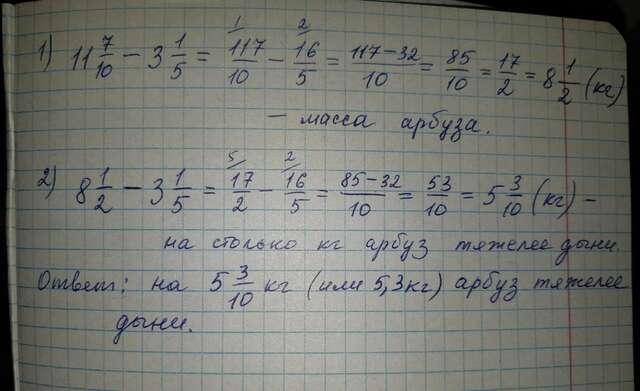 1) 11 7/10 − 3 1/5 = 117/10 (1) − 16/5 (2) = (117−32)/10 = 85/10 = 17/2 = 8 1/2 (кг)
— масса арбуза.
2) 8 1/2 − 3 1/5 = 17/2 (5) − 16/5 (2) = (85−32)/10 = 53/10 = 5 3/10 (кг) –
на столько кг арбуз тяжелее дыни.
Ответ: на 5 3/10 кг (или 5,3кг) арбуз тяжелее
дыни.